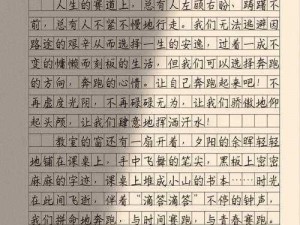 人生的赛道上，总有人左顾右盼、踌躇不
前，总有人不紧不慢地行走。我们无法逃避因
路途的艰辛从而选择一生的安逸，过着一成不
变的慵懒而刻板的生活，但我们可以选择奔跑
的方向，奔跑的心情。让自己奔跑起来吧！不
再虚度光阴，不再碌碌无为，让我们骄傲地仰
起头颅，让我们肆意地挥洒汗水！
教室的窗还有一扇开着，夕阳的余晖轻轻
地铺在课桌上，手中飞舞的笔尖，黑板上密密
麻麻的字迹，课桌上堆成小山的书本……时光
在此间飞逝，伴着“滴答滴答”不停的钟声，
我们拼命地奔跑，与时间赛跑，与青春赛跑。